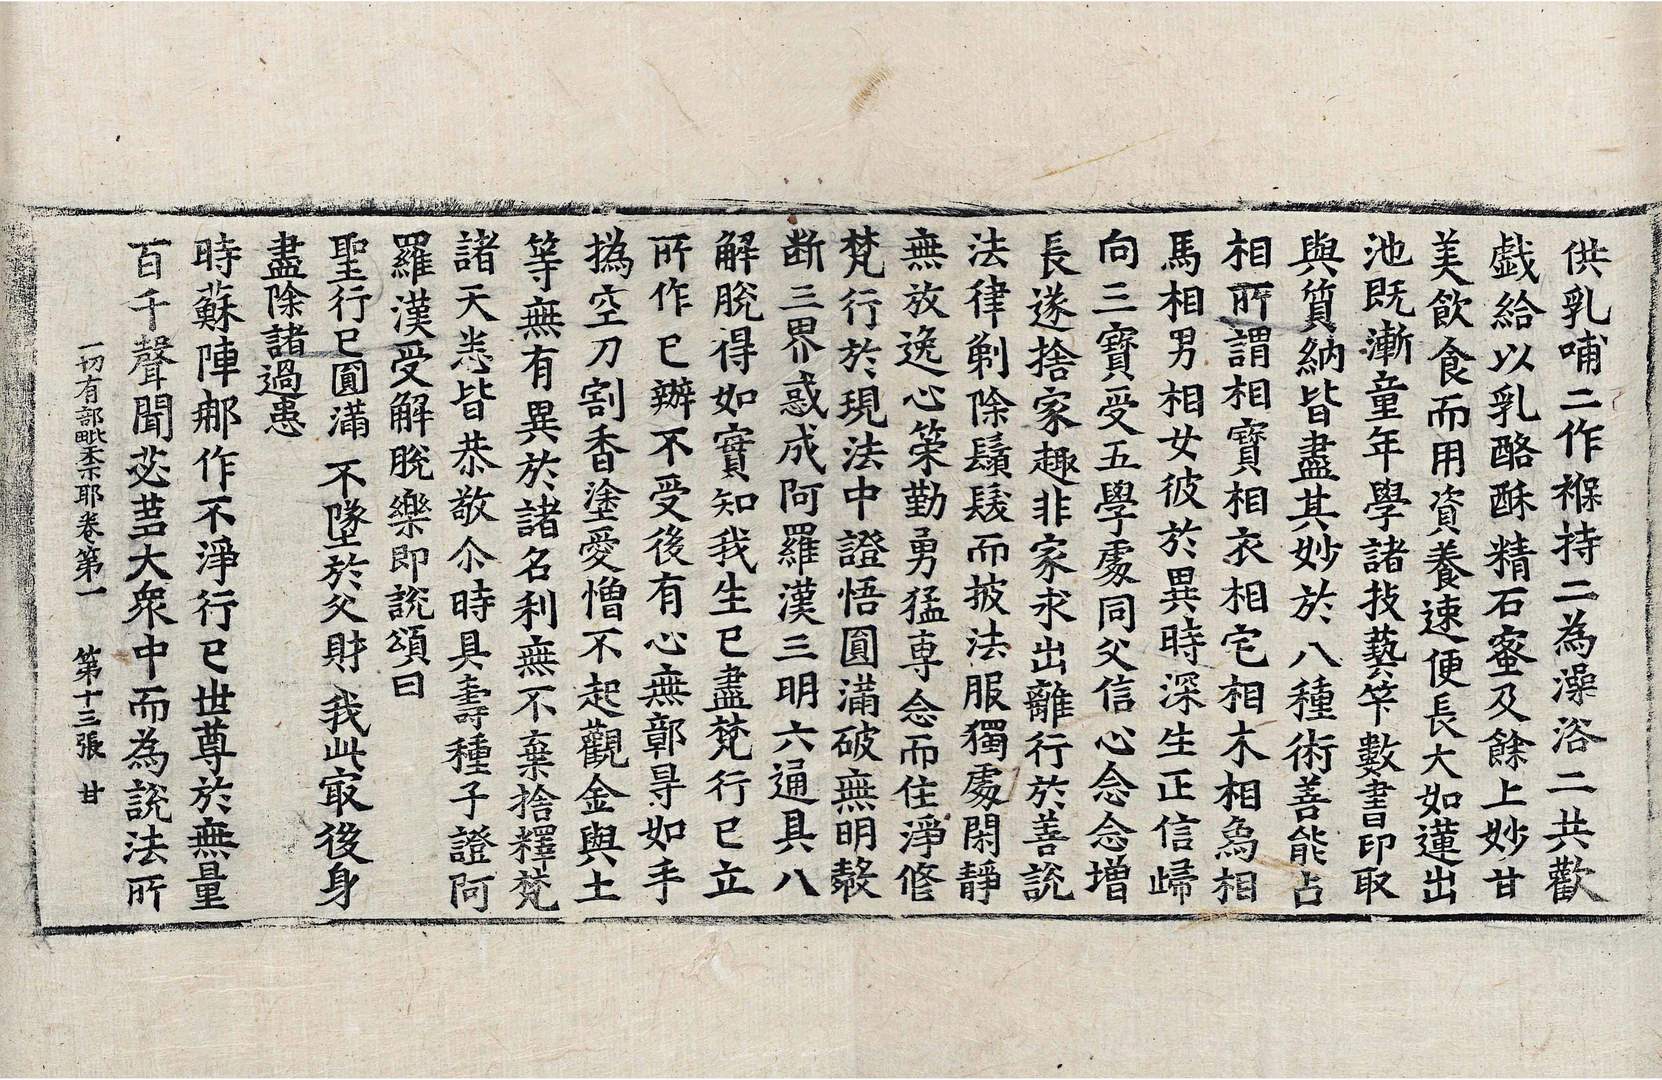 供乳哺二作褓持二為澡浴二共歡
戲給以乳酪酥精石蜜及餘上妙甘
美飲食而用資養速便長大如蓮出
池既漸童年學諸技藝筭數書印取
與質納皆盡其妙於八種術善能占
相所謂相寶相衣相宅相木相象相
馬相男相女彼於異時深生正信歸
向三寶受五學處同父信心念念增
長遂捨家趣非家求出離行於善說
法律剃除鬚髮而披法服獨處閑靜
無放逸心策勤勇猛專念而住淨修
梵行於現法中證悟圓滿破無明㲉
断三界惑成阿羅漢三明六通具八
解脫得如實知我生已盡梵行已立
所作已辦不受後有心無鄣㝵如手
撝空刀割香塗愛憎不起觀金與土
等無有異於諸名利無不棄捨釋梵
諸天悉皆恭敬尒時具壽種子證阿
羅漢受解脫樂即說頌曰
聖行已圓滿 不墜於父財 我此㝡後身
盡除諸過患
時蘇陣那作不淨行已世尊於無量
百千聲聞苾蒭大衆中而為說法所
一切有部毗柰耶卷第一 第十三張 甘